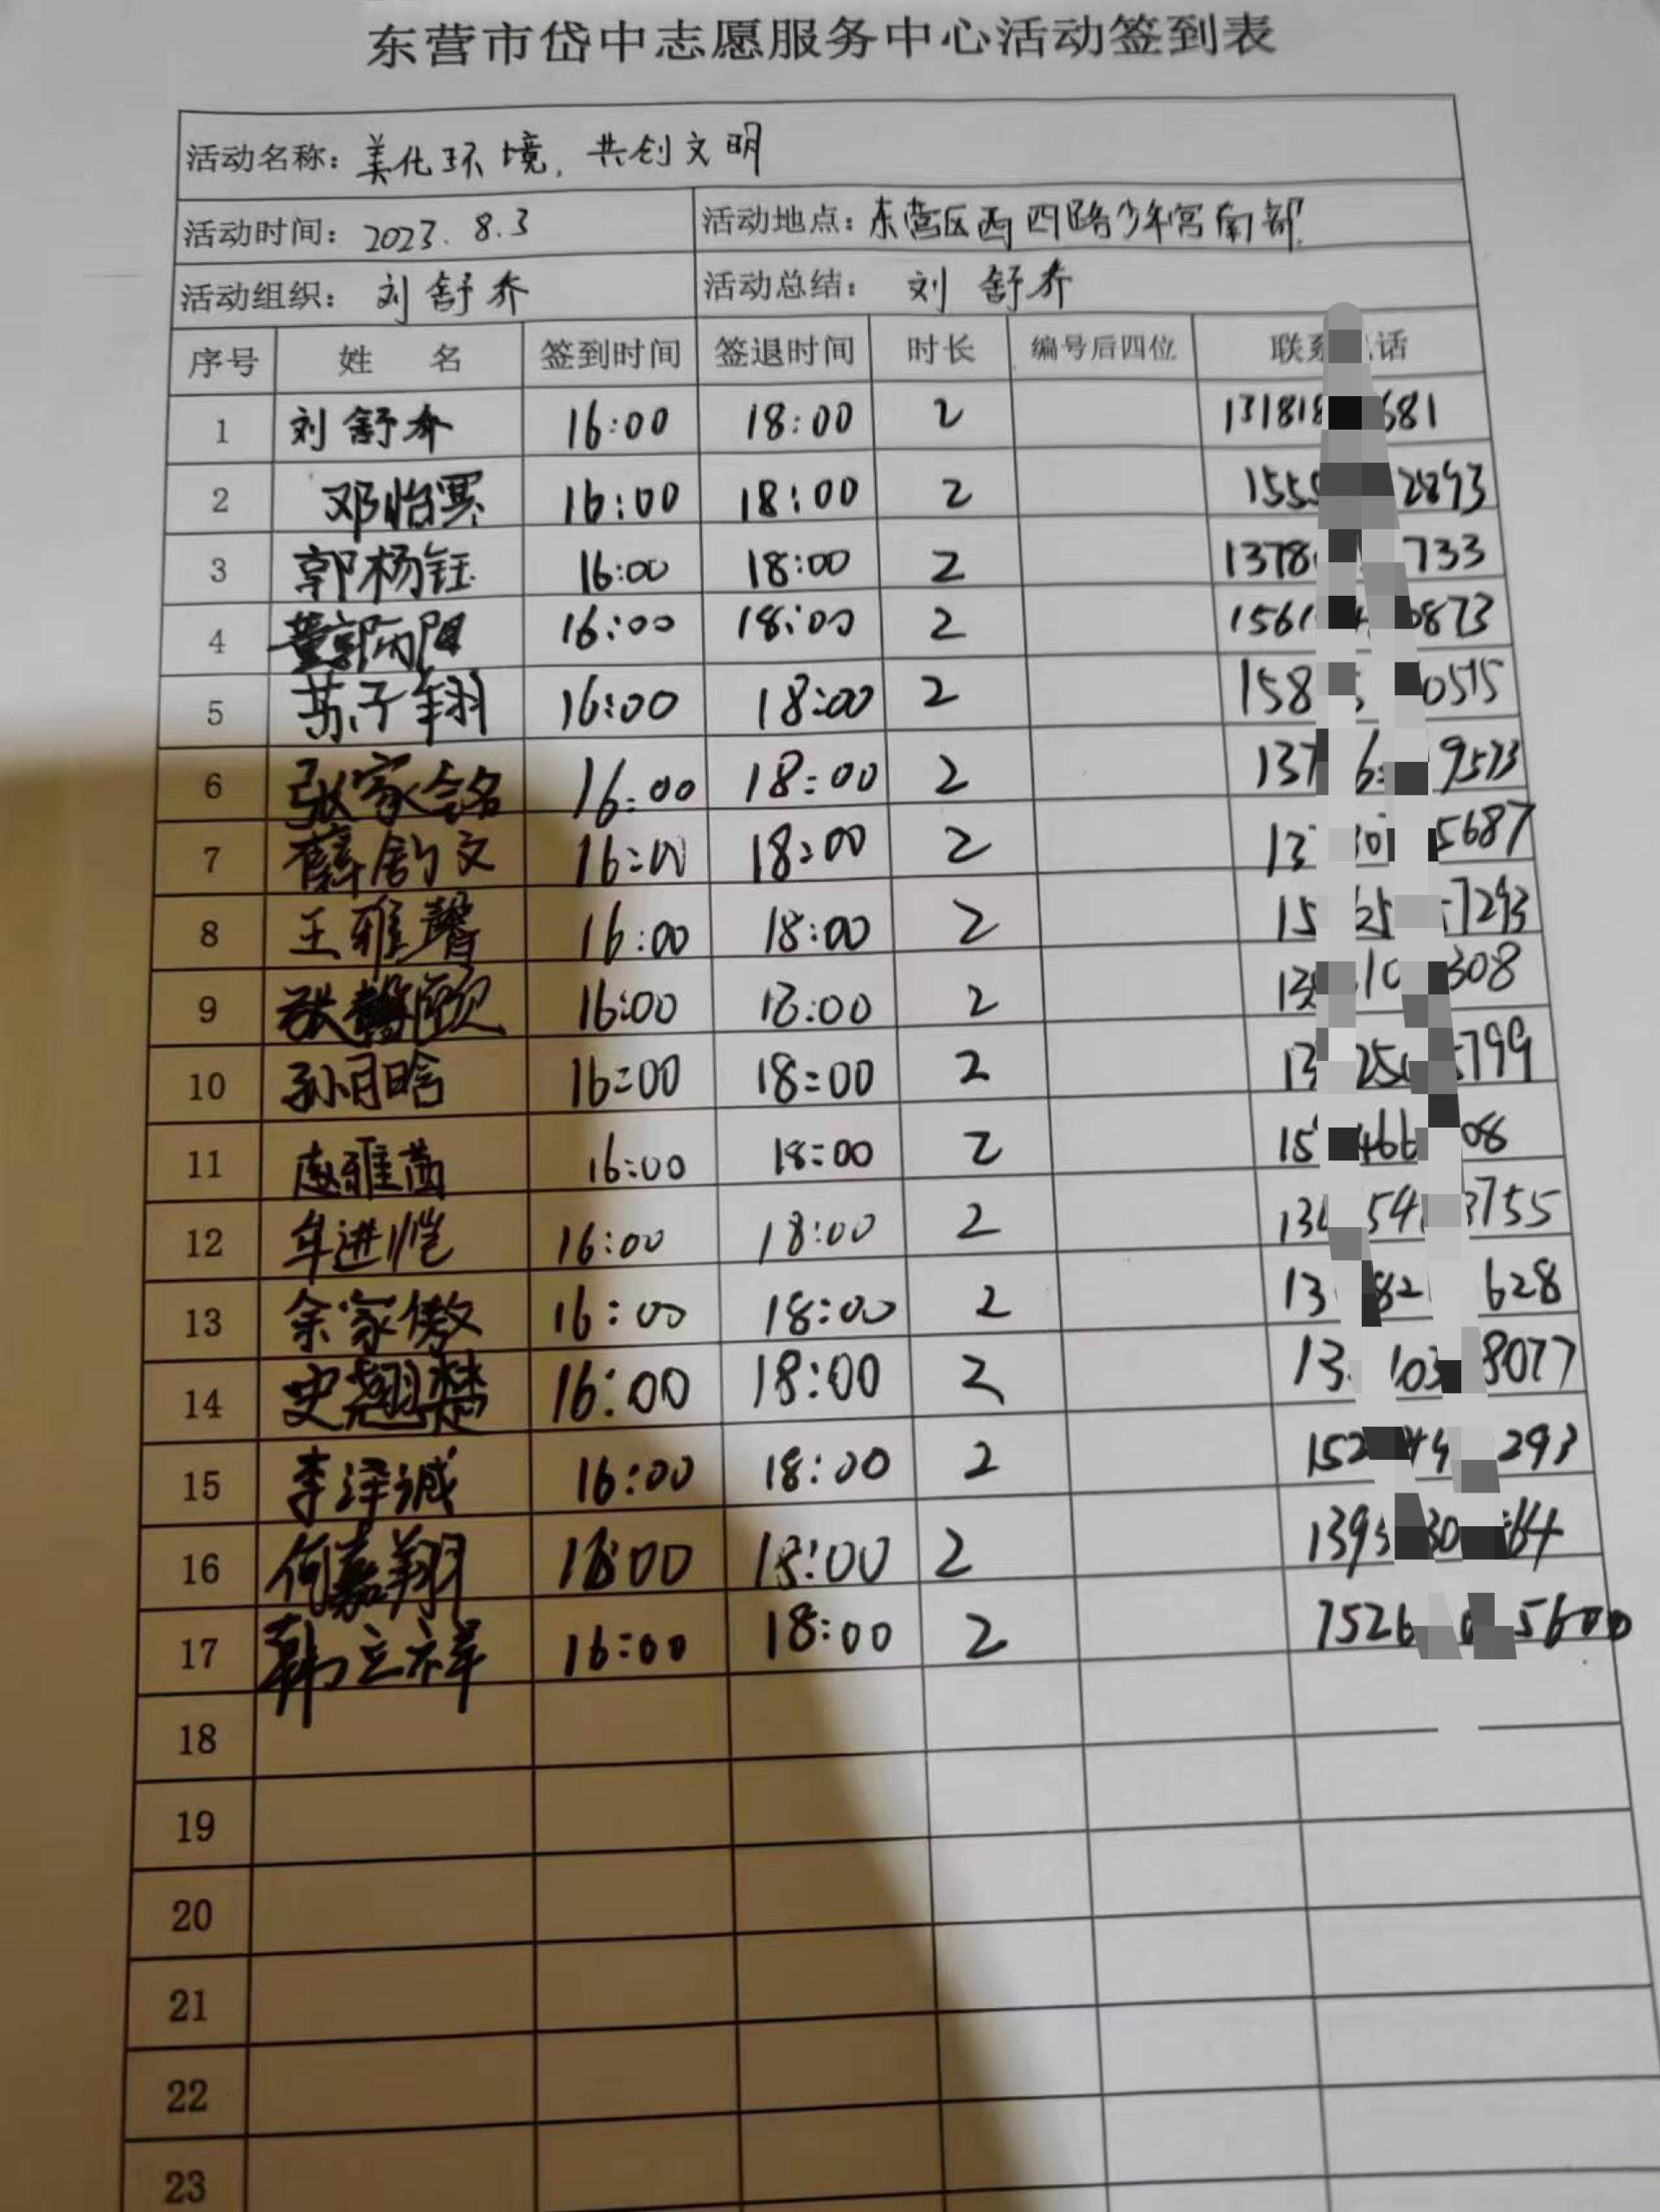 东营市岱中志愿服务中心活动签到表
活动名称：美化环境，共创文明
活动时间：2023.8.3 活动地点：东营区西四路少年宫南部
活动组织：刘舒乔 活动总结：刘舒乔
序号 姓名 签到时间 签退时间 时长 编号后四位 联系 话
1 刘舒乔 16:00 18:00 2 131818 681
2 邓怡 16:00 18:00 2 155 2893
3 郭杨钰 16:00 18:00 2 1378 733
4 董郭雨阳 16:00 18:00 2 1561 0873
5 苏子翔 16:00 18:00 2 158 0515
6 张家铭 16:00 18:00 2 137 6 9573
7 薛舒文 16:00 18:00 2 13 5687
8 王雅馨 16:00 18:00 2 15 7293
9 张馨颐 16:00 18:00 2 13 10 308
10 孙月晗 16:00 18:00 2 13 25 799
11 赵雅茜 16:00 18:00 2 15 466 08
12 牟进恺 16:00 18:00 2 13 54 3755
13 余家傲 16:00 18:00 2 13 82 628
14 史翘楚 16:00 18:00 2 13 103 8077
15 李泽诚 16:00 18:00 2 152 44 293
16 何嘉翔 16:00 18:00 2 139 30 64
17 韩立祥 16:00 18:00 2 1526 5600
18
19
20
21
22
23